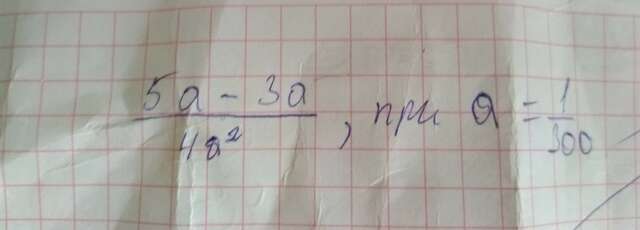 5a - 3a
4a², при a = 1/300